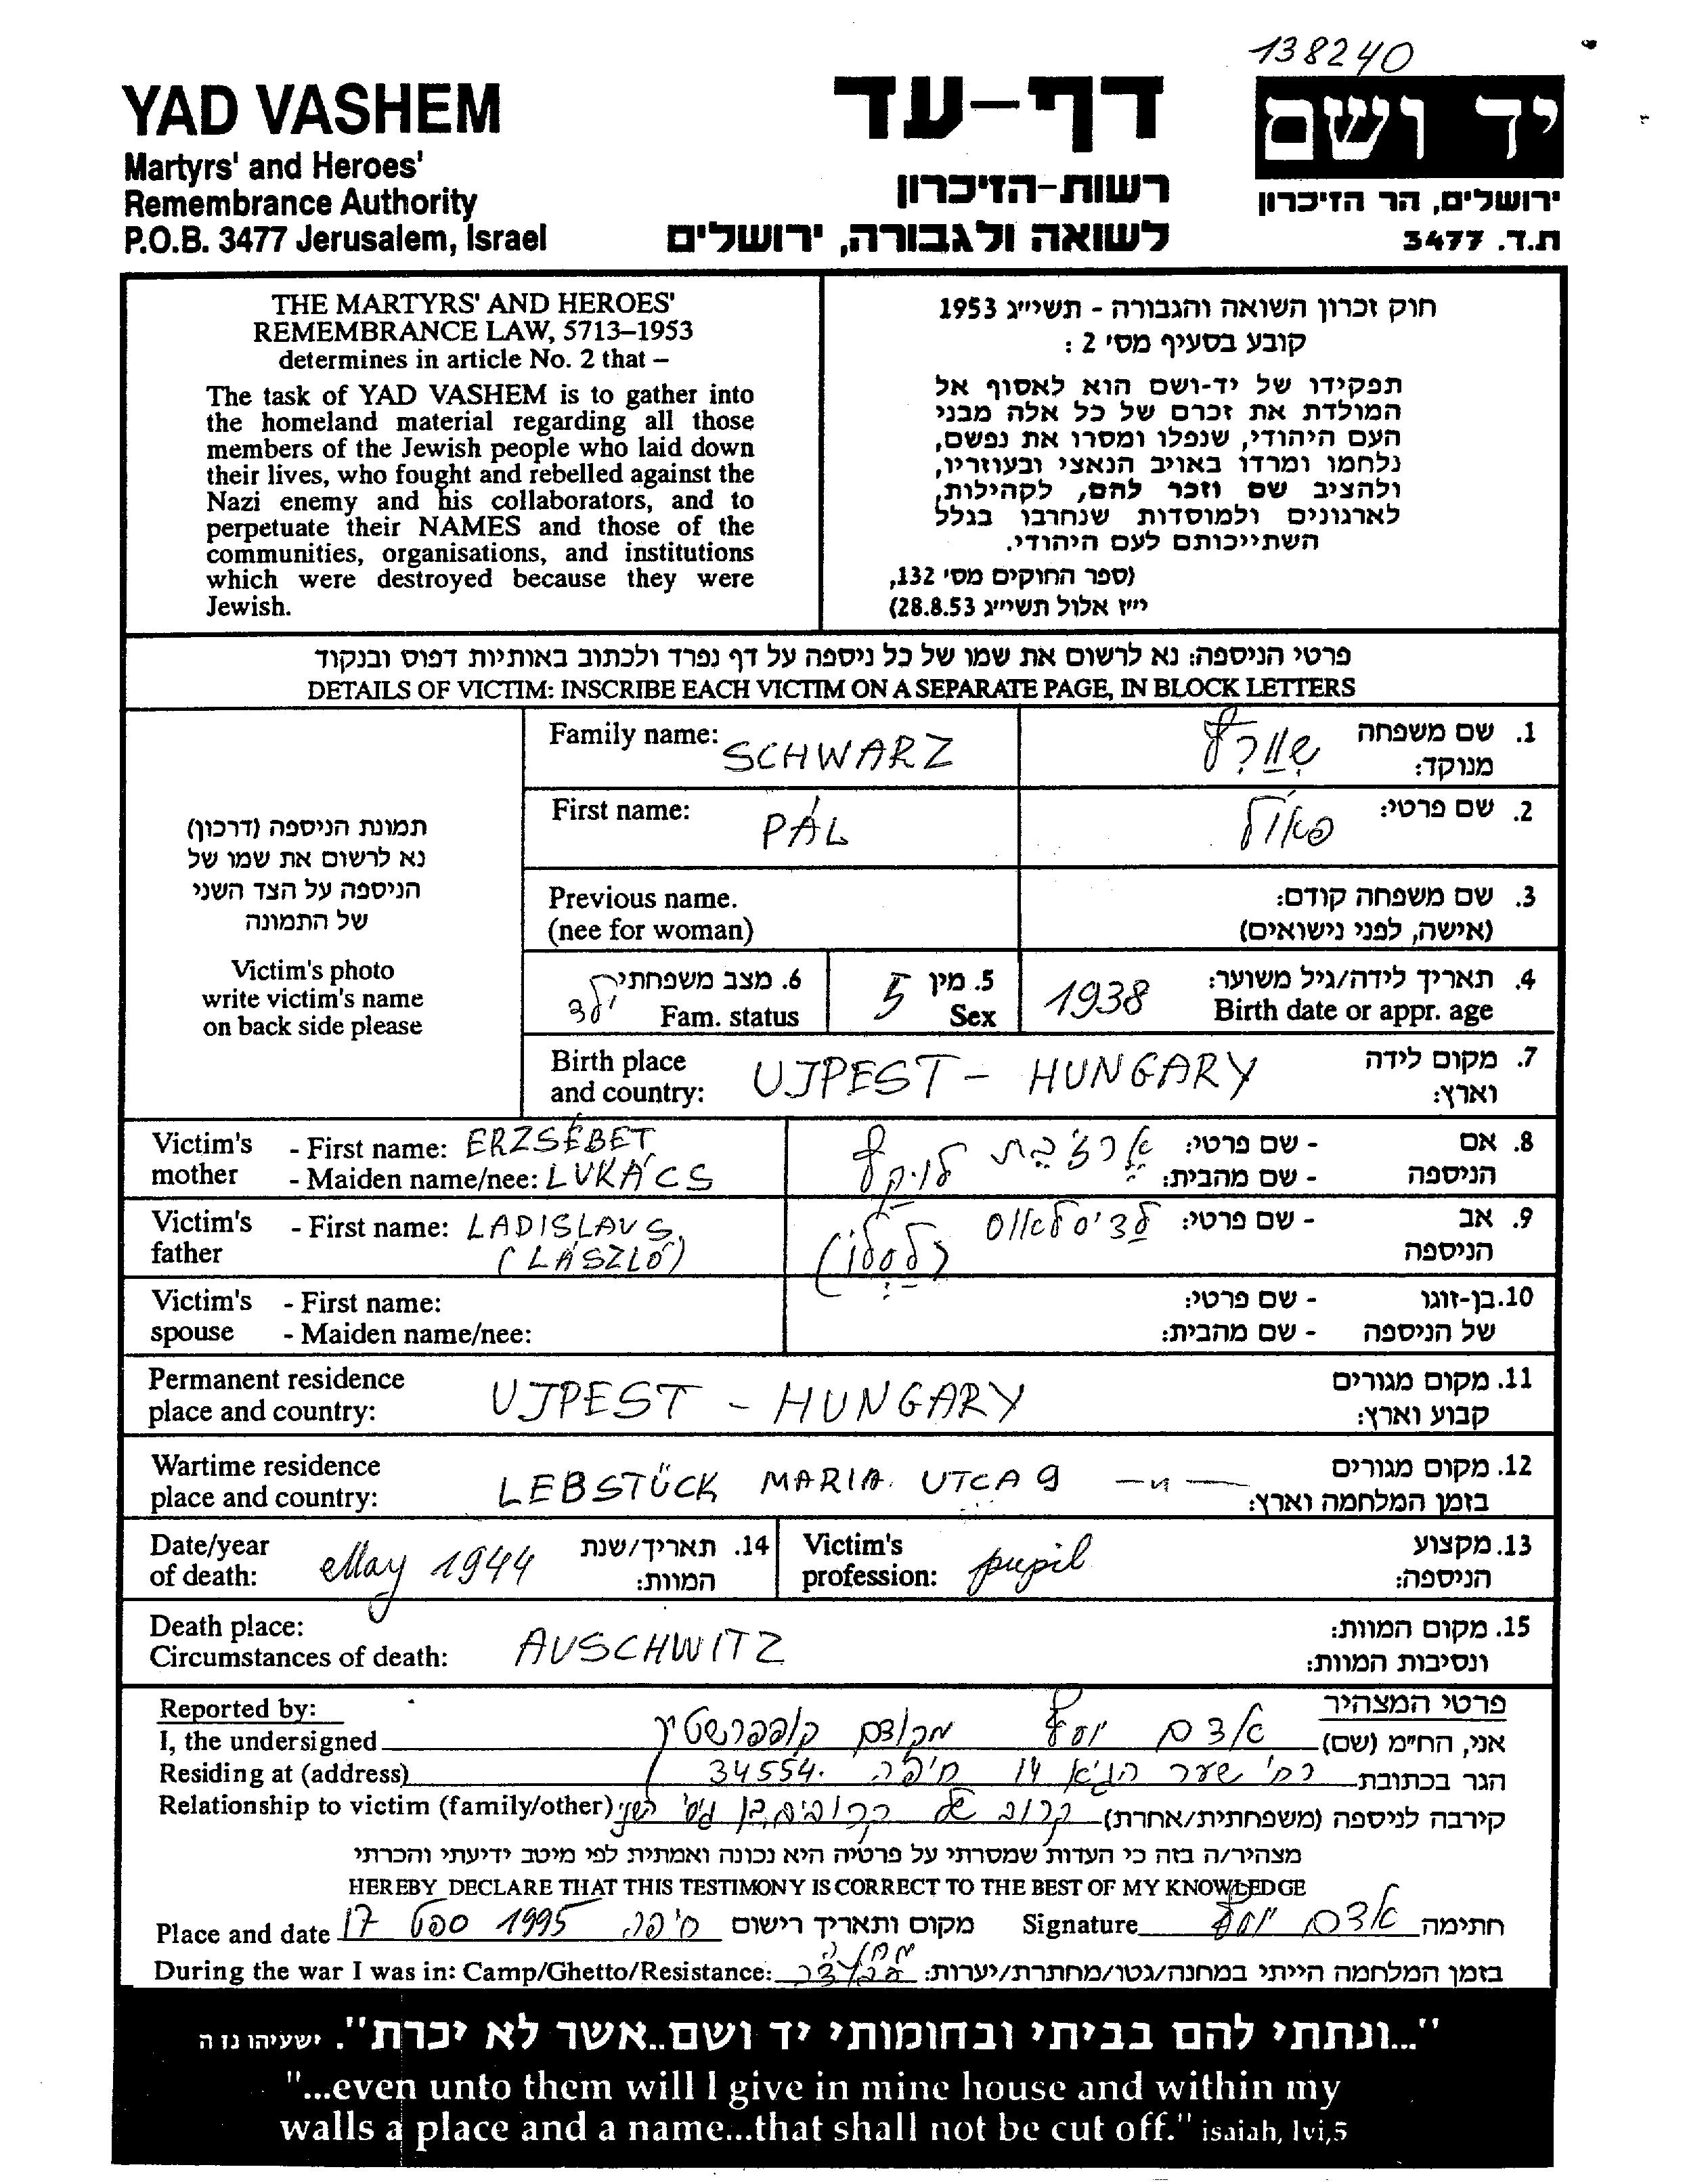 138240
YAD VASHEM
Martyrs' and Heroes'
Remembrance Authority
P.O.B. 3477 Jerusalem, Israel
דף-עד
רשות-הזיכרון
לשואה ולגבורה, ירושלים
יד ושם
ירושלים, הר הזיכרון
ת.ד. 3477
THE MARTYRS' AND HEROES'
REMEMBRANCE LAW, 5713–1953
determines in article No. 2 that –
The task of YAD VASHEM is to gather into
the homeland material regarding all those
members of the Jewish people who laid down
their lives, who fought and rebelled against the
Nazi enemy and his collaborators, and to
perpetuate their NAMES and those of the
communities, organisations, and institutions
which were destroyed because they were
Jewish.
חוק זכרון השואה והגבורה - תשי״ג 1953
קובע בסעיף מס׳ 2 :
תפקידו של יד-ושם הוא לאסוף אל
המולדת את זכרם של כל אלה מבני
העם היהודי, שנפלו ומסרו את נפשם,
נלחמו ומרדו באויב הנאצי ובעוזריו,
ולהציב שם וזכר להם, לקהילות,
לארגונים ולמוסדות שנחרבו בגלל
השתייכותם לעם היהודי.
(ספר החוקים מס׳ 132,
י״ז אלול תשי״ג 28.8.53)
פרטי הניספה: נא לרשום את שמו של כל ניספה על דף נפרד ולכתוב באותיות דפוס ובנקוד
DETAILS OF VICTIM: INSCRIBE EACH VICTIM ON A SEPARATE PAGE, IN BLOCK LETTERS
תמונת הניספה (דרכון)
נא לרשום את שמו של
הניספה על הצד השני
של התמונה
Victim's photo
write victim's name
on back side please
Family name: SCHWARZ שוורץ 1. שם משפחה
מנוקד:
First name: PÁL פאול 2. שם פרטי:
Previous name. 3. שם משפחה קודם:
(nee for woman) (אישה, לפני נישואים)
6. מצב משפחתי ילד 5. מין 5 1938 4. תאריך לידה/גיל משוער:
Fam. status Sex Birth date or appr. age
Birth place and country: UJPEST - HUNGARY 7. מקום לידה
וארץ:
Victim's mother - First name: ERZSÉBET ארז׳בת - שם פרטי: 8. אם
- Maiden name/nee: LUKÁCS - שם מהבית: הניספה
Victim's father - First name: LADISLAUS לדיסלאוס - שם פרטי: 9. אב
(LÁSZLÓ) הניספה
Victim's - First name: - שם פרטי: 10.בן-זוגו
spouse - Maiden name/nee: - שם מהבית: של הניספה
Permanent residence 11. מקום מגורים
place and country: UJPEST - HUNGARY קבוע וארץ:
Wartime residence 12. מקום מגורים
place and country: LEBSTÜCK MARIA UTCA 9 —"— בזמן המלחמה וארץ:
Date/year of death: May 1944 14. תאריך/שנת
המוות:
Victim's profession: pupil 13.מקצוע
הניספה:
Death place: 15. מקום המוות:
Circumstances of death: AUSCHWITZ ונסיבות המוות:
Reported by: פרטי המצהיר
I, the undersigned מקודם קופפרשטיין אדם יוסף אני, הח״מ (שם)
Residing at (address) רח׳ שער הגיא 14 חיפה 34554 הגר בכתובת
Relationship to victim (family/other) קרוב של קירבה לניספה (משפחתית/אחרת)
מצהיר/ה בזה כי העדות שמסרתי על פרטיה היא נכונה ואמתית לפי מיטב ידיעתי והכרתי
HEREBY DECLARE THAT THIS TESTIMONY IS CORRECT TO THE BEST OF MY KNOWLEDGE
Place and date 17 ספט 1995 חיפה מקום ותאריך רישום Signature אדם יוסף חתימה
During the war I was in: Camp/Ghetto/Resistance: בזמן המלחמה הייתי במחנה/גטו/מחתרת/יערות:
"...ונתתי להם בביתי ובחומותי יד ושם..אשר לא יכרת". ישעיהו נז ה
"...even unto them will I give in mine house and within my
walls a place and a name...that shall not be cut off." isaiah, lvi,5